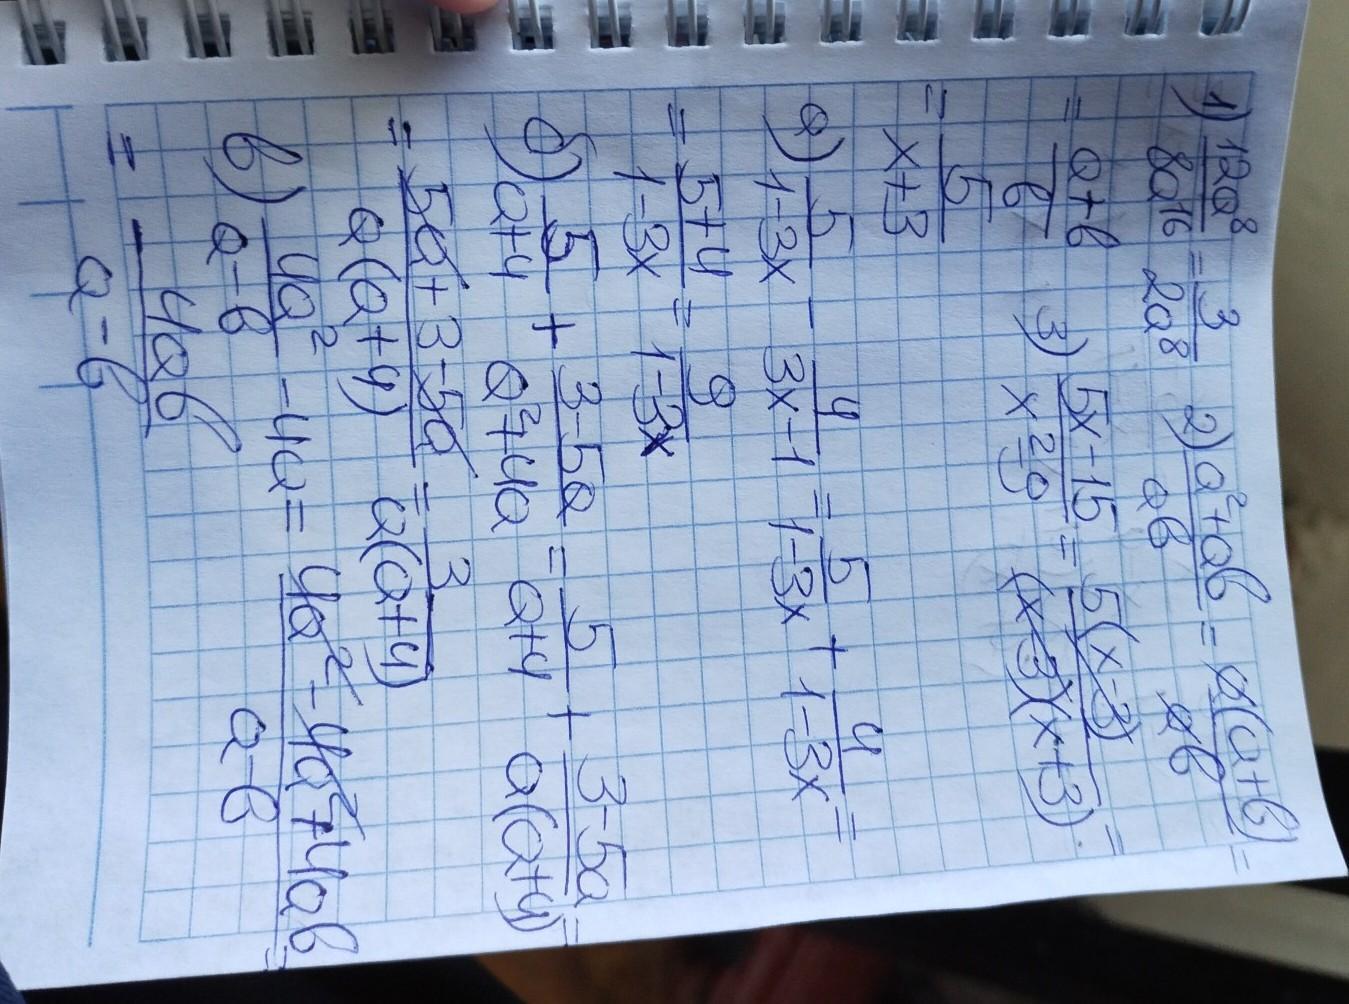 1) 12a⁸/8a¹⁶ = 3/2a⁸ 2) a²+ab/ab = a(a+b)/ab =
= a+b/b 3) 5x-15/x²-9 = 5(x-3)/(x-3)(x+3) =
= 5/x+3
a) 5/1-3x - 4/3x-1 = 5/1-3x + 4/1-3x =
= 5+4/1-3x = 9/1-3x
б) 5/a+4 + 3-5a/a²+4a = 5/a+4 + 3-5a/a(a+4) =
= 5a+3-5a/a(a+4) = 3/a(a+4)
в) 4a²/a-b - 4a = 4a²-4a²+4ab/a-b =
= 4ab/a-b